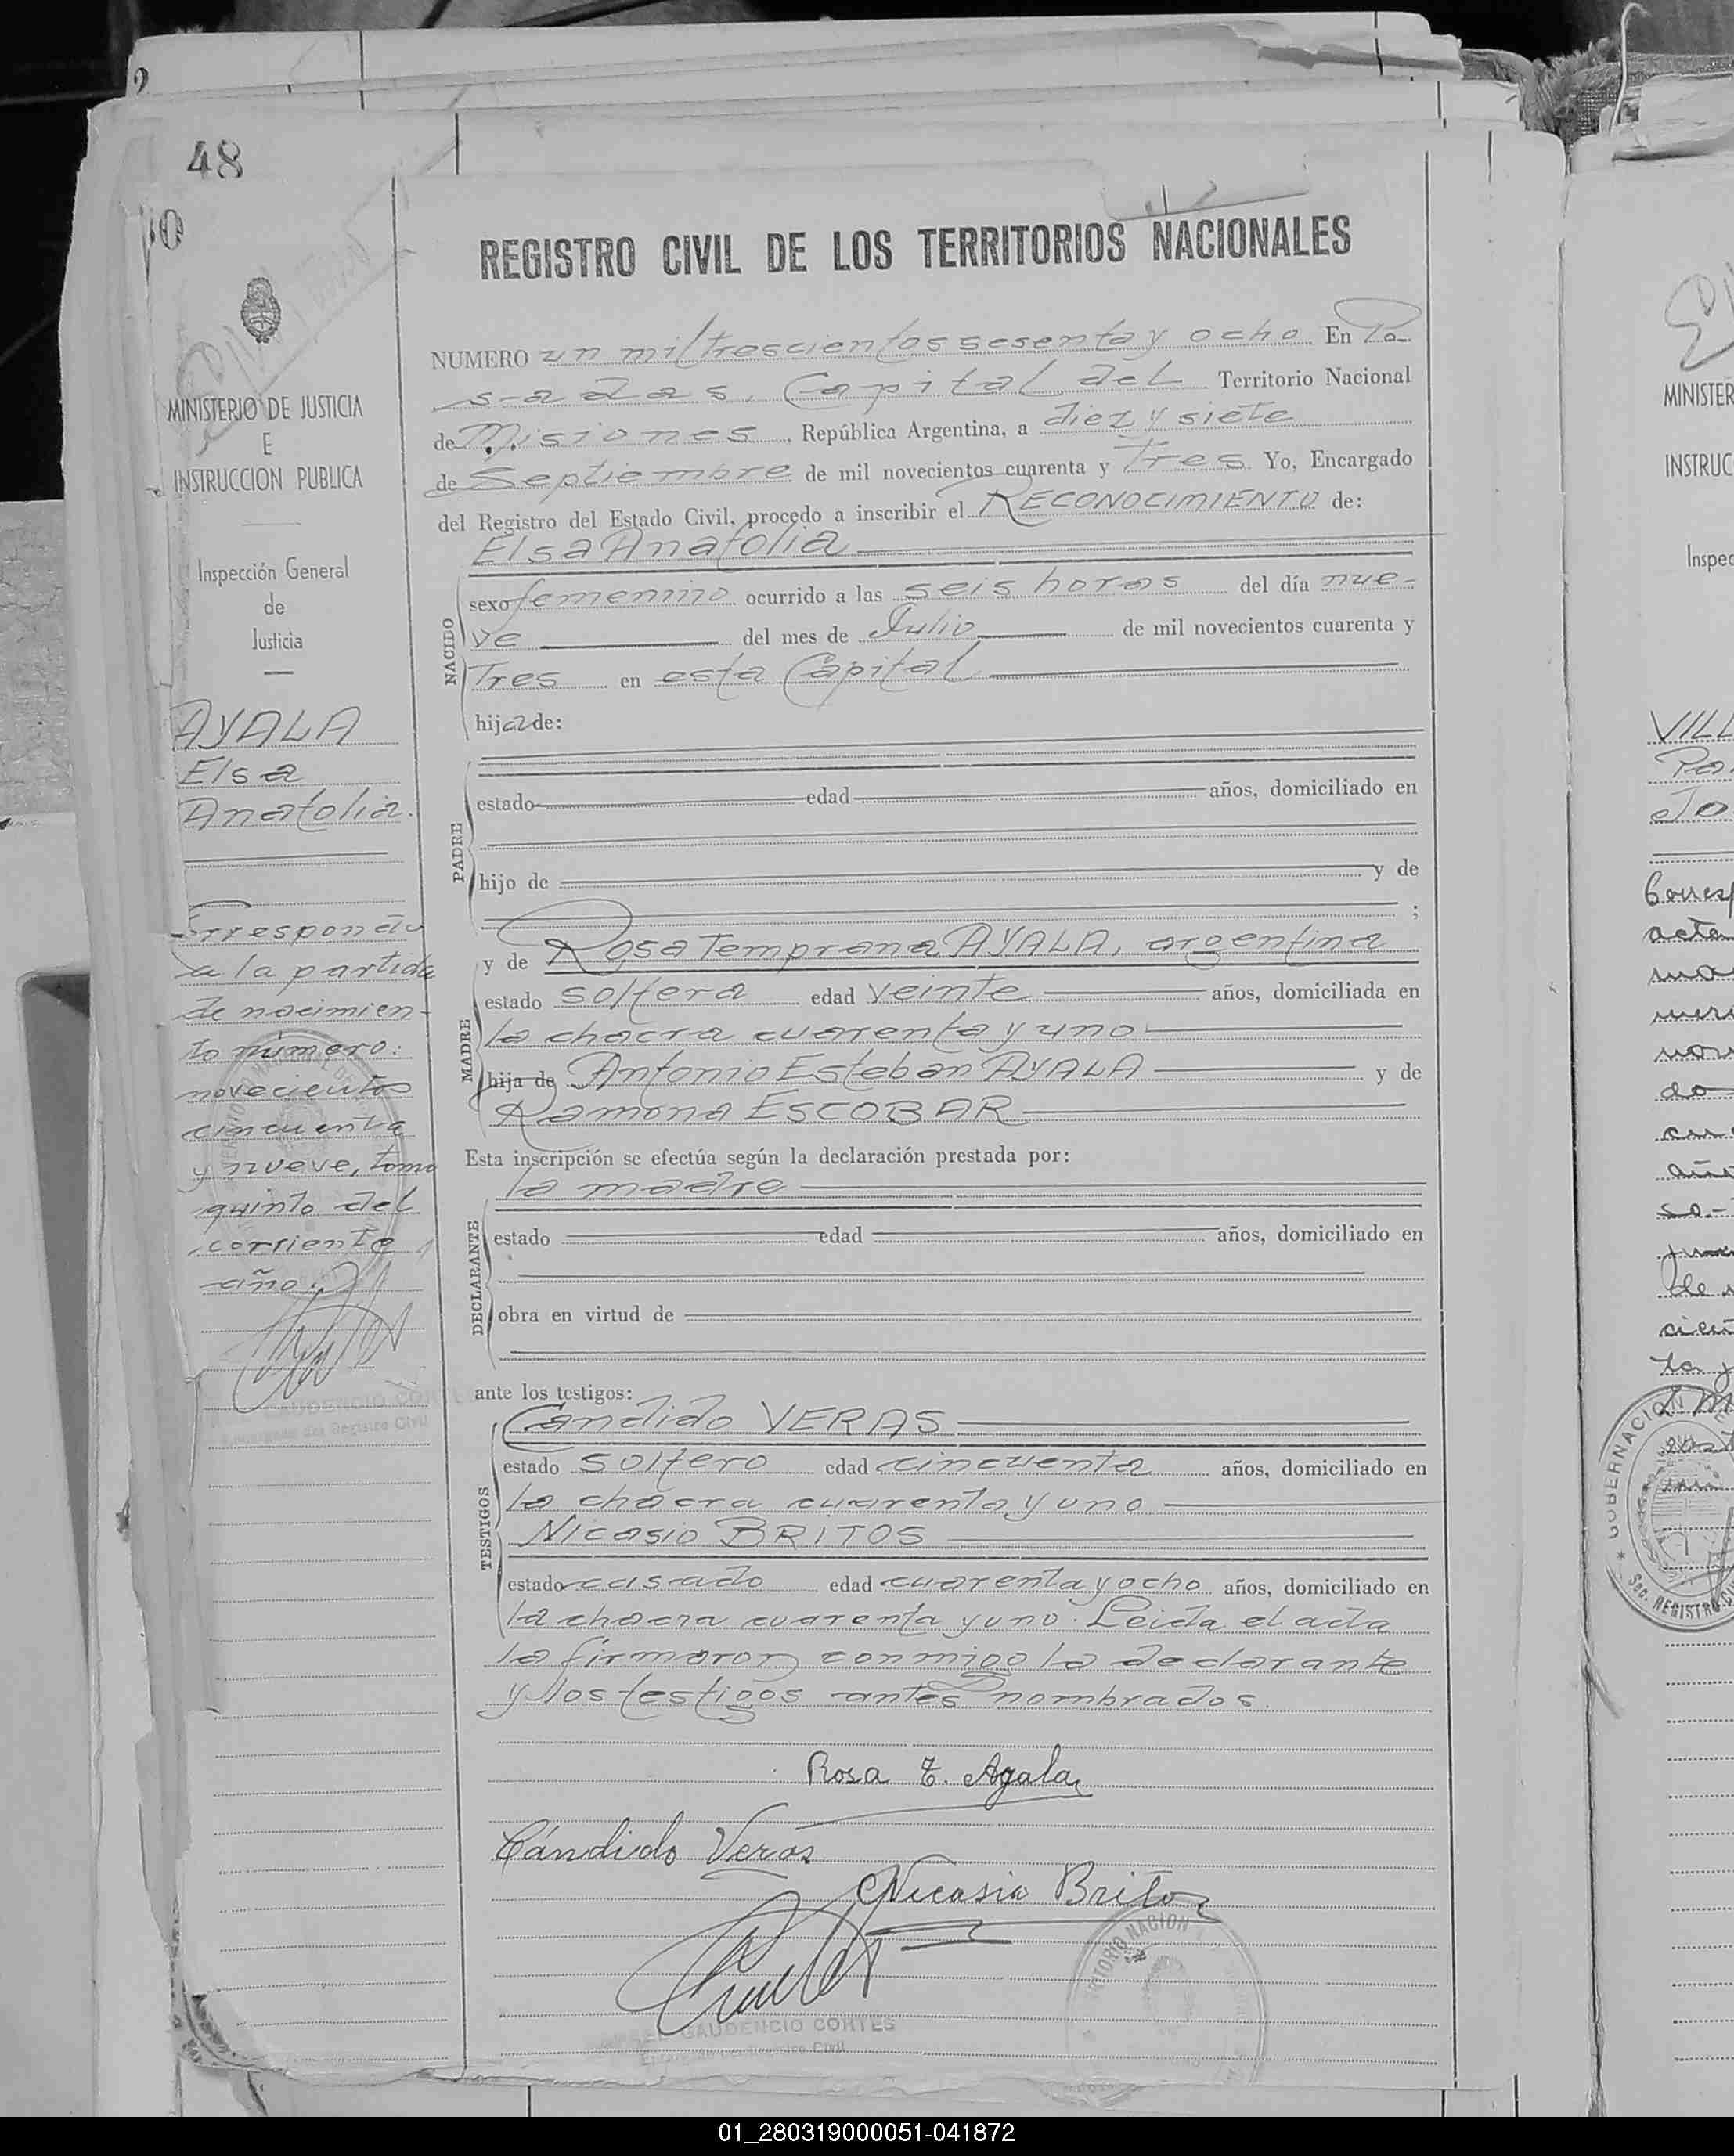 2
48
10
REGISTRO CIVIL DE LOS TERRITORIOS NACIONALES
MINISTERIO DE JUSTICIA
E
INSTRUCCION PUBLICA
Inspección General
de
Justicia
AYALA
Elsa
Anatolia.
Corresponde
a la partida
de nacimien-
to número:
novecientos
cincuenta
y nueve, tomo
quinto del
corriente
año.
GAUDENCIO CORTES
Encargado del Registro Civil
NUMERO un mil trescientos sesenta y ocho En Po-
sadas, Capital del Territorio Nacional
de Misiones, República Argentina, a diez y siete
de Septiembre de mil novecientos cuarenta y Tres Yo, Encargado
del Registro del Estado Civil, procedo a inscribir el RECONOCIMIENTO de:
Elsa Anatolia
NACIDO
sexo femenino ocurrido a las seis horas del día nue-
ve del mes de Julio de mil novecientos cuarenta y
Tres en esta Capital
hija de:
PADRE
estado edad años, domiciliado en
hijo de y de
;
y de Rosa Temprana AYALA, argentina
MADRE
estado soltera edad veinte años, domiciliada en
la chacra cuarenta y uno
hija de Antonio Esteban AYALA y de
Ramona ESCOBAR
Esta inscripción se efectúa según la declaración prestada por:
la madre
DECLARANTE
estado edad años, domiciliado en
obra en virtud de
ante los testigos:
Candido VERAS
TESTIGOS
estado soltero edad cincuenta años, domiciliado en
la chacra cuarenta y uno
Nicasio BRITOS
estado casado edad cuarenta y ocho años, domiciliado en
la chacra cuarenta y uno. Leida el acta
la firmaron conmigo la declarante
y los testigos antes nombrados.
Rosa T. Ayala
Cándido Veras
Nicasio Brito
TORIO NACION
GAUDENCIO CORTES
Encargado del Registro Civil
MINISTER
INSTRUC
Inspec
VILL
Jo
Corresp
acta
GOBERNACION
Sec. REGISTRO
01_280319000051-041872